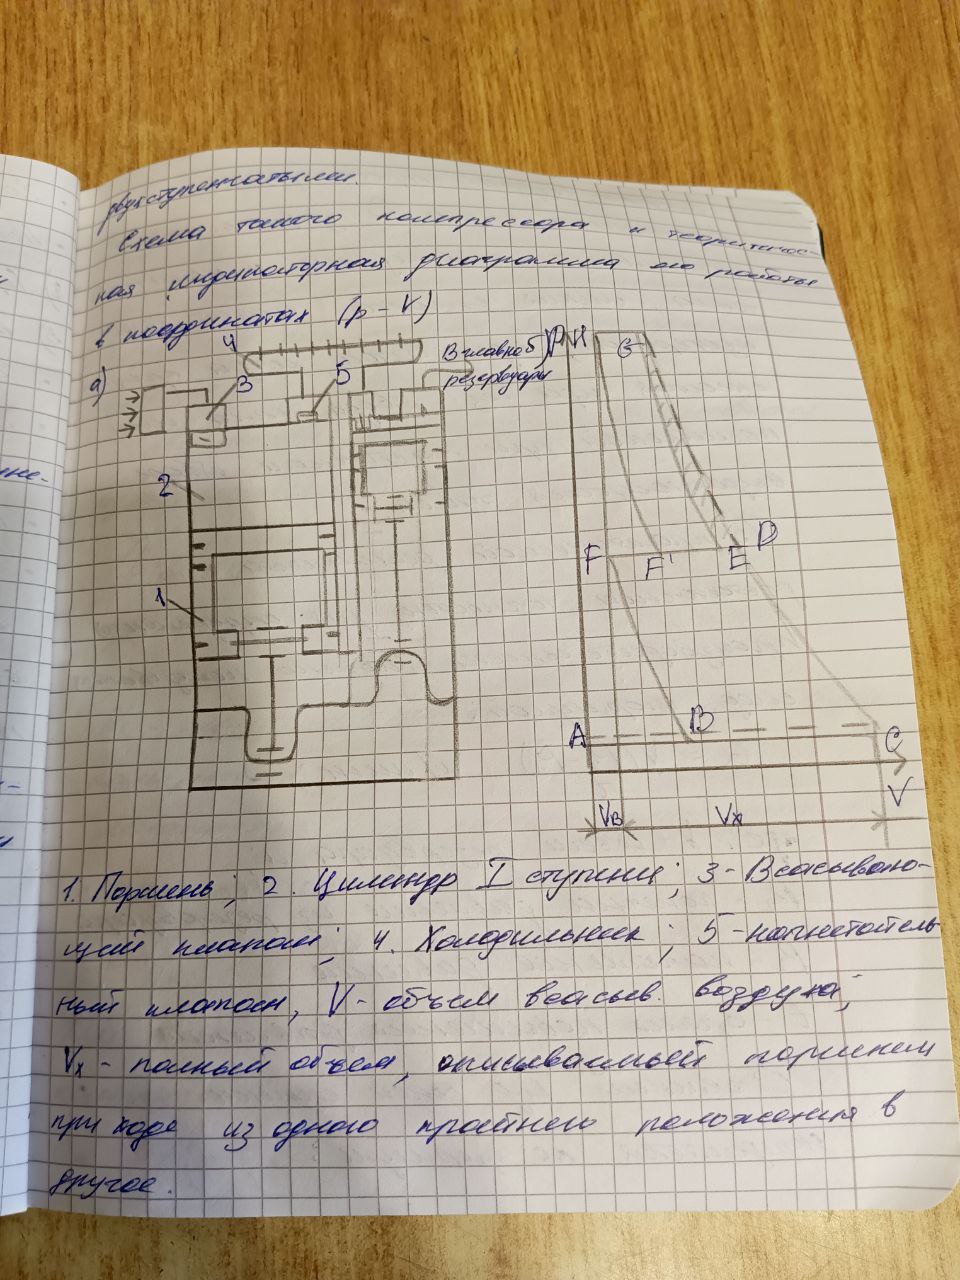 двухступенчатыми.
Схема такого компрессора и теоретичес-
кая индикаторная диаграмма его работы
в координатах (p - V)
а)
4
3
5
В главные
резервуары
2
1
б)
P
H
G
F
F'
E
D
A
B
C
V
Vв
Vx
1. Поршень; 2. Цилиндр I ступени; 3 - Всасываю-
щий клапан; 4. Холодильник; 5 - нагнетатель
ный клапан, V - объем всасыв. воздуха;
Vx - полный объем, описываемый поршнем
при ходе из одного крайнего положения в
другое.